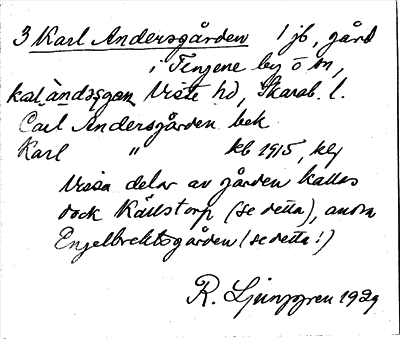 3 Karl Andersgården 1 jb, gård
i Tengene by o sn,
kal àndəsgan Viste hd, Skarab. l.
Carl Andersgården bek
Karl " kb 1915, hlf
Vissa delar av gården kallas
dock Källstorp (se detta), andra
Engelbrektsgården (se detta!)
R. Ljunggren 1929